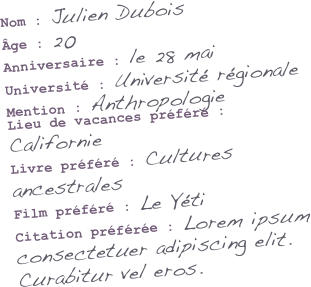 Nom : Julien Dubois
Âge : 20
Anniversaire : le 28 mai
Université : Université régionale
Mention : Anthropologie
Lieu de vacances préféré :
Californie
Livre préféré : Cultures
ancestrales
Film préféré : Le Yéti
Citation préférée : Lorem ipsum
consectetuer adipiscing elit.
Curabitur vel eros.